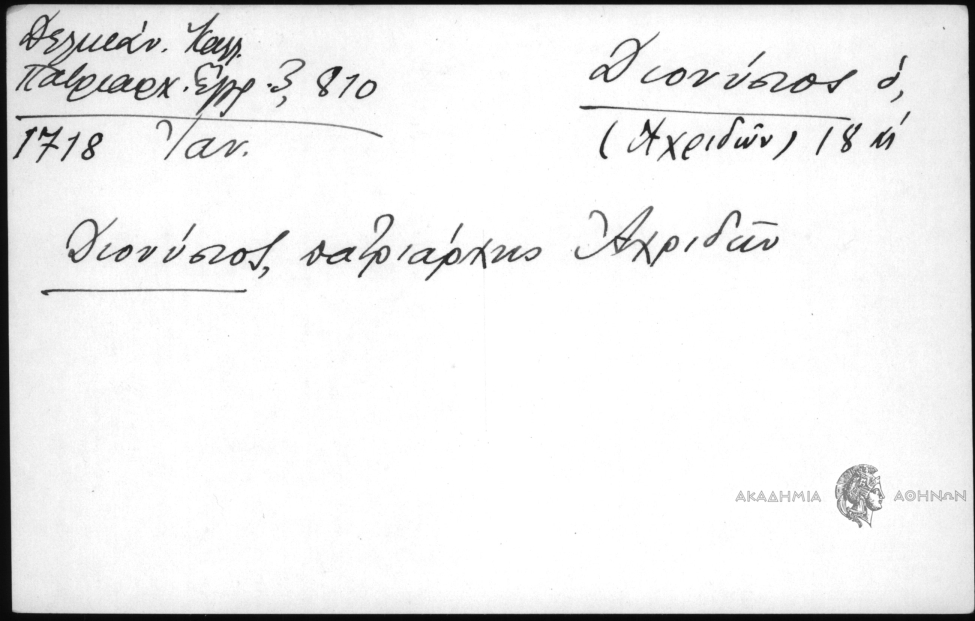 Δελικάν. Καλλ.
Πατριαρχ. Έγγρ. 3, 810
1718 Ἰαν.
Διονύσιος ὁ,
(Ἀχριδῶν) 18
Διονύσιος, πατριάρχης Ἀχριδῶν
ΑΚΑΔΗΜΙΑ ΑΘΗΝΩΝ